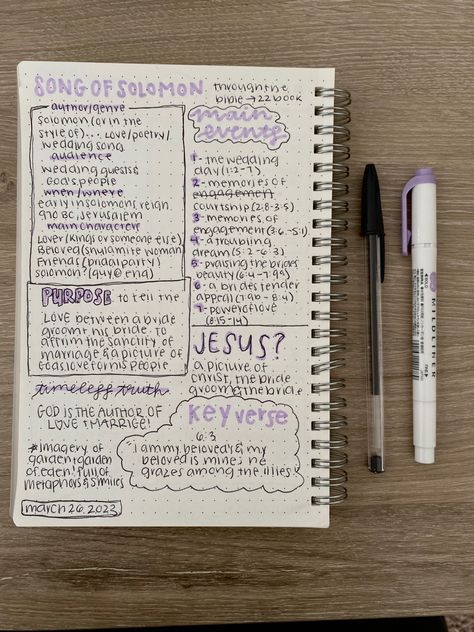 SONG OF SOLOMON
through the
bible → 22 book
author/genre
solomon (or in the
style of)... love/poetry/
wedding song
audience
wedding guests &
God's people
when/where
early in solomons reign
970 BC, Jerusalem
main characters
Lover (king or someone else)
Beloved (shulamite woman)
Friends (bridal party)
Solomon (guy @ end)
PURPOSE to tell the
LOVE between a bride
groom & his bride. to
affirm the sanctity of
marriage & a picture of
Gods love for his People
timeless truth
GOD IS THE AUTHOR OF
LOVE & MARRIAGE!
*imagery of
garden & garden
of eden! full of
metaphors & similies
march 26, 2023
main
events
1- the wedding
day (1:2-7)
2- memories of
engagement
courtship (2:8-3:5)
3- memories of
engagement (3:6-5:1)
4- a troubling
dream (5:2-6:3)
5- praising the brides
beauty (6:4-7:9a)
6- a brides tender
appeal (7:9b-8:4)
7- power of love
(8:5-14)
JESUS?
a picture of
christ, the bride
groom & the bride.
Key verse
6:3
i am my beloved's & my
beloved is mine; he
grazes among the lilies
ZEBRA
MILDLINER